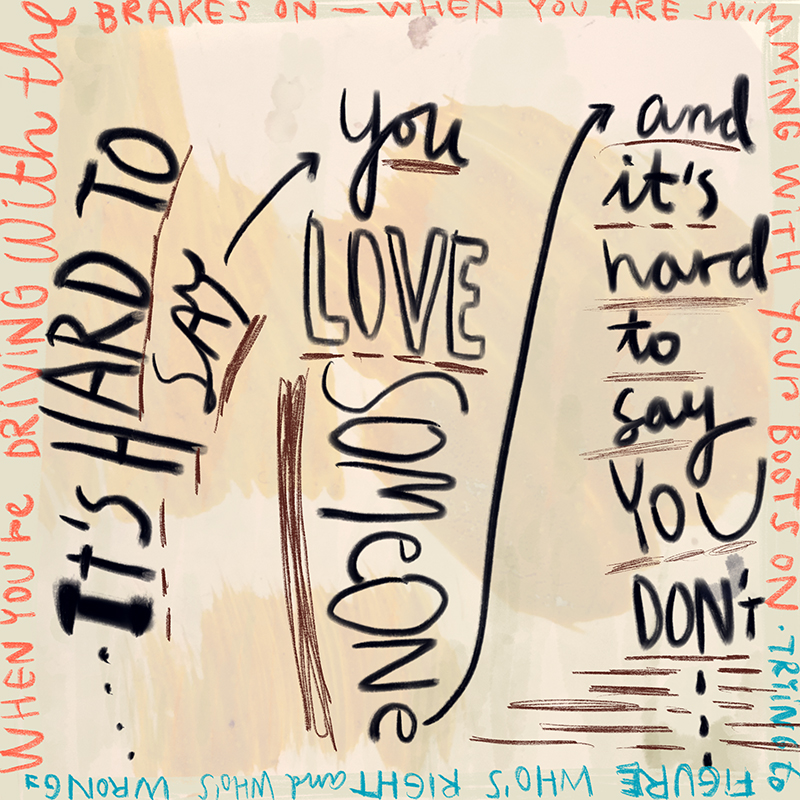 WHEN YOU'RE DRIVING With the
BRAKES ON — WHEN YOU ARE SWIMMING WITH YOUR BOOTS ON.
TRYING to FIGURE WHO'S RIGHT and WHO'S WRONG:
....It's HARD TO
SAY
you
LOVE
SOMEONE
and
it's
hard
to
say
YOU
DON't